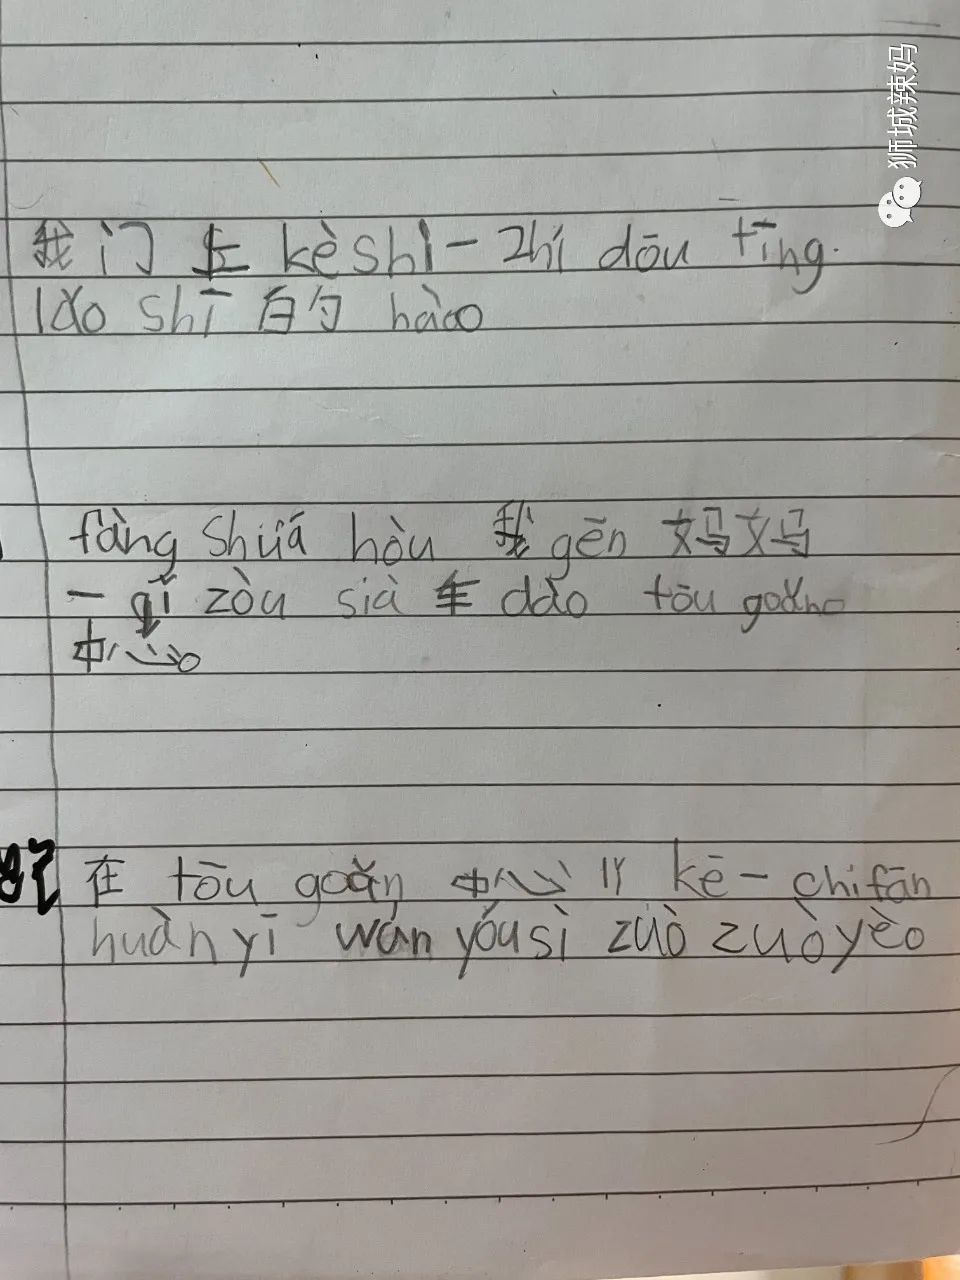 狮城辣妈
我门 上 kèshì一 zhí dōu tīng.
lǎo shī 的 hàào
fàng shüá hòu 我 gēn 妈妈
一 qǐ zòu sià 车 dào tōu goǎn
中心。
记 在 tōu goǎn 中心 kē一 chifān
huànyī wán yóusì zuò zuòyèo